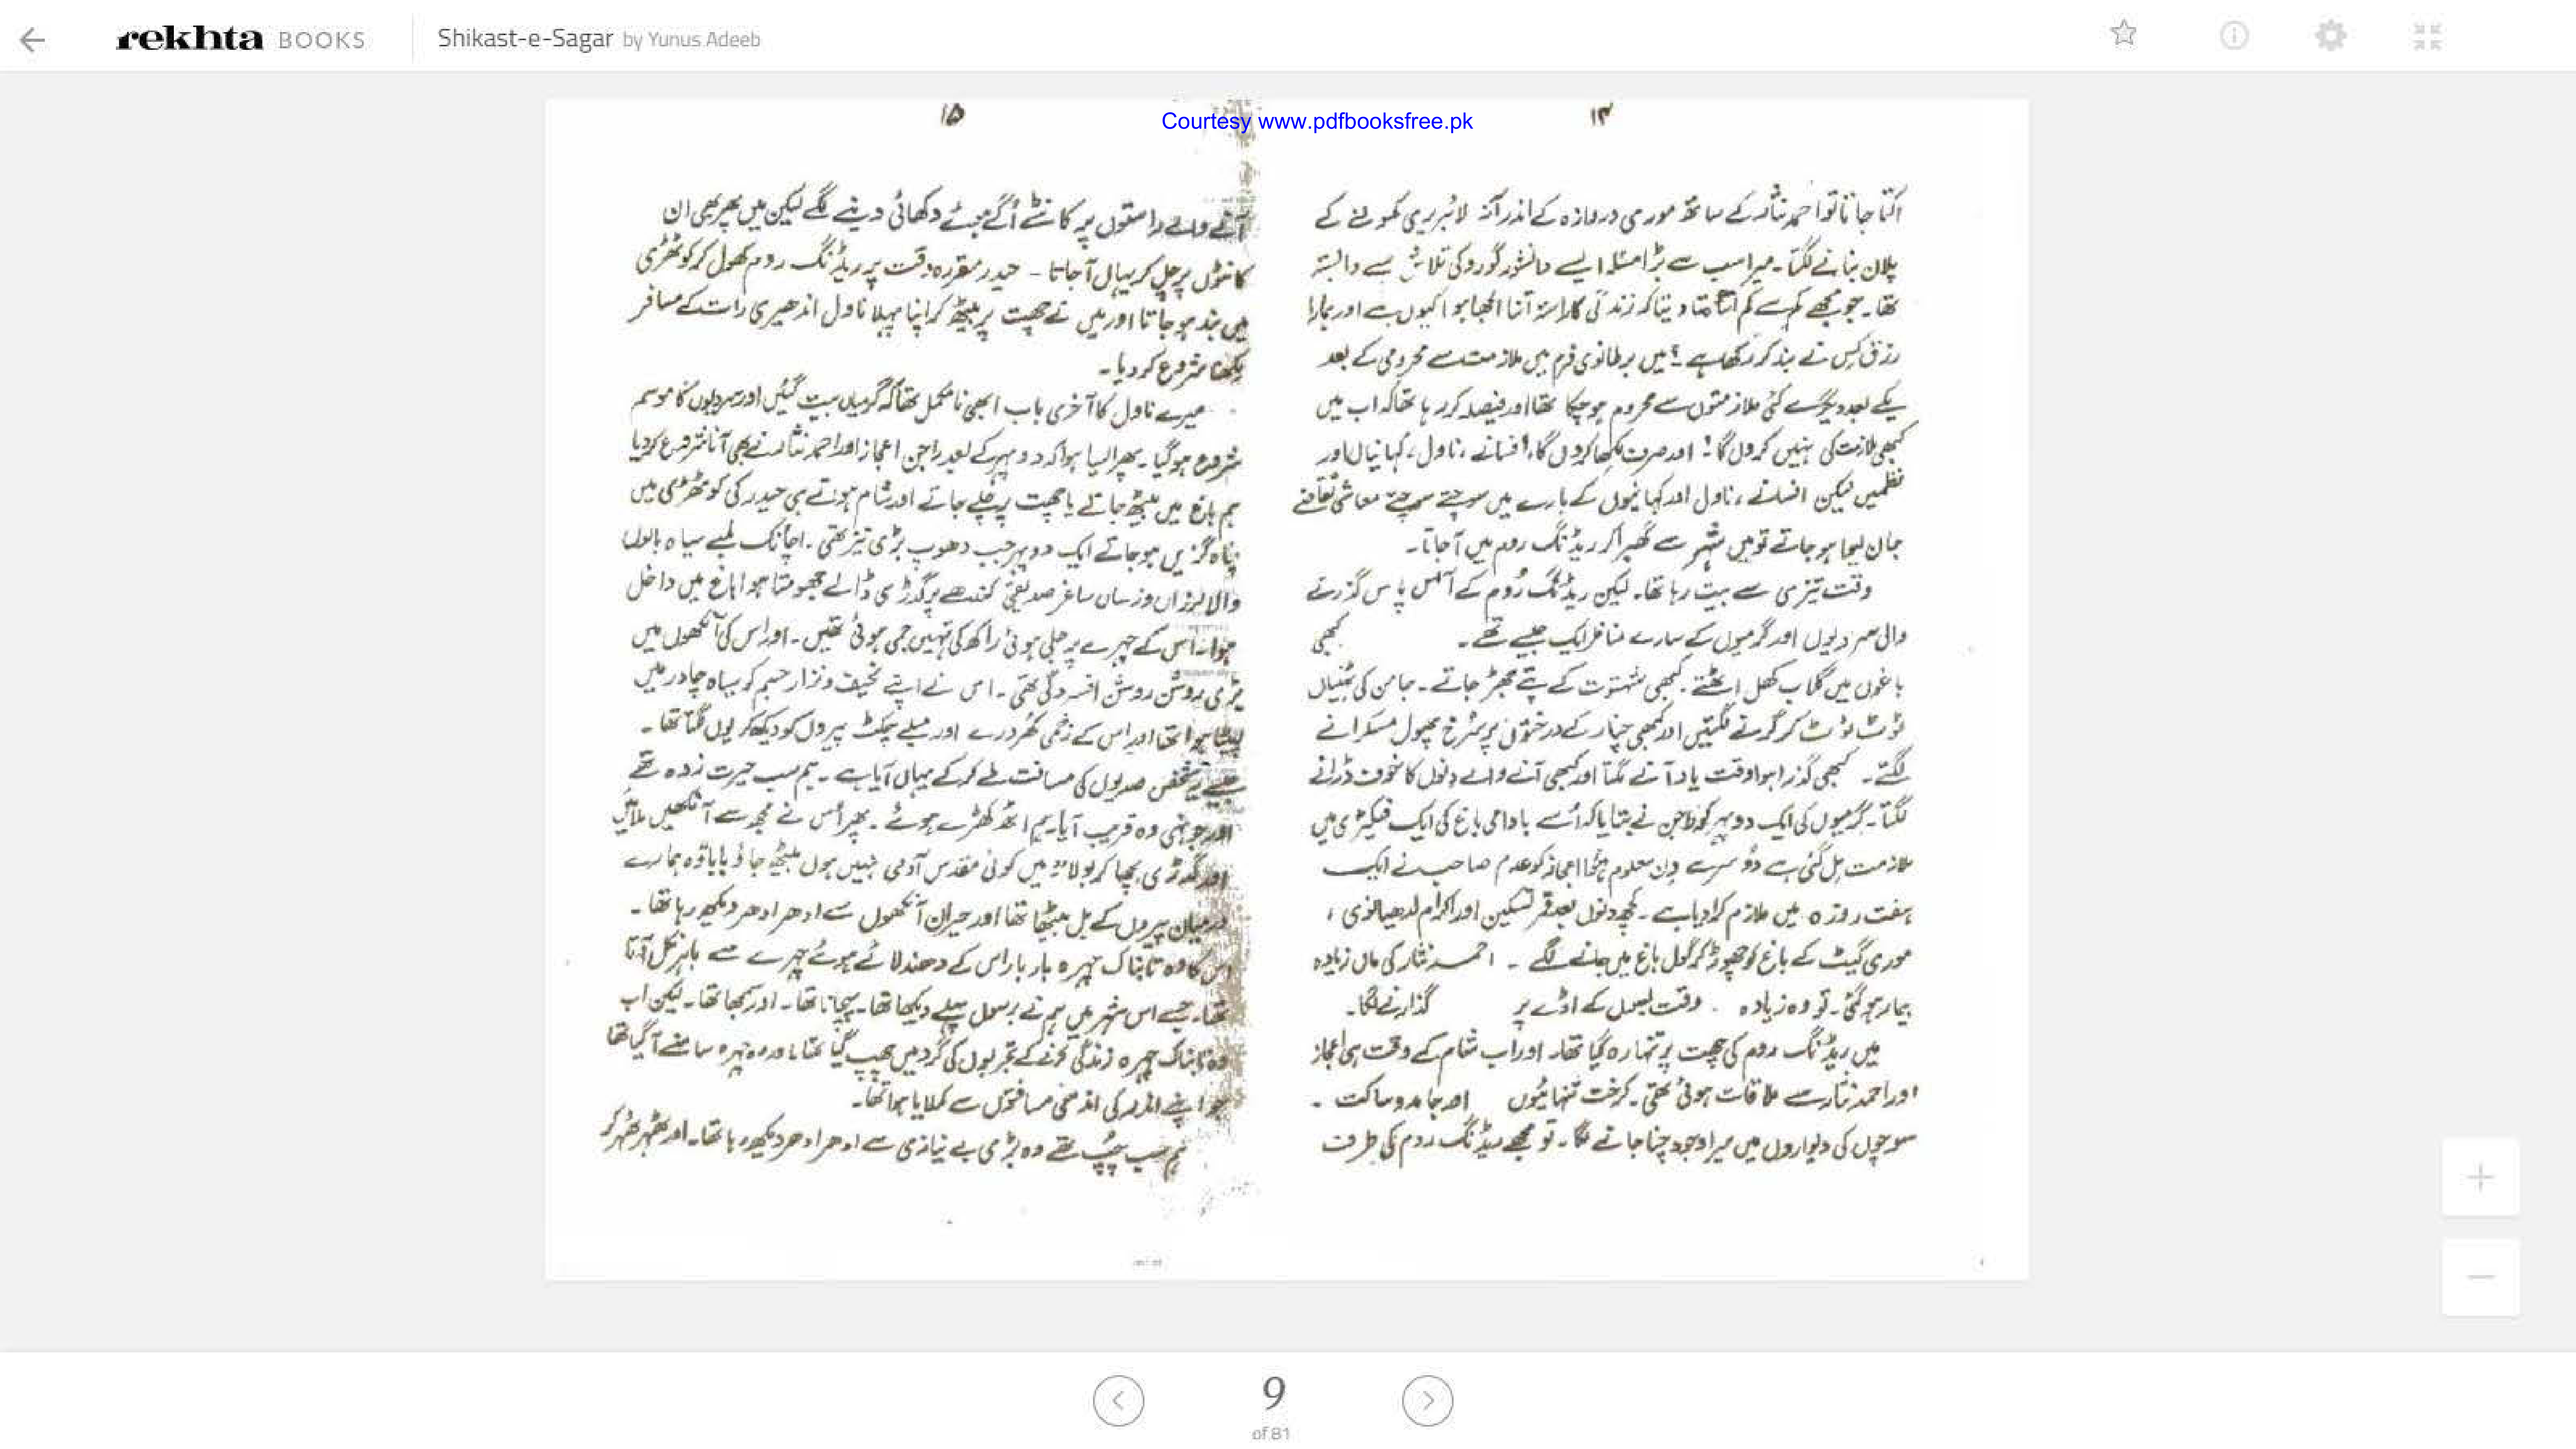 rekhta BOOKS
Shikast-e-Sagar by Yunus Adeeb
Courtesy www.pdfbooksfree.pk
۱۴
اکتا جاتا تو احمد نثار کے ساتھ موری دروازہ کے اندر آنہ لائبریری کھولنے کے
پلان بنانے لگتا۔ میرا سب سے بڑا مسئلہ ایسے دانشور گورو کی تلاش سے وابستہ
تھا۔ جو مجھے کم سے کم اتنا بتا دیتا کہ زندگی کا راستہ اتنا الجھا ہوا کیوں ہے اور ہمارا
رزق کس نے بند کر رکھا ہے؟ میں برطانوی فرم میں ملازمت سے محرومی کے بعد
یکے بعد دیگرے کئی ملازمتوں سے محروم ہو چکا تھا اور فیصلہ کر رہا تھا کہ اب میں
کبھی ملازمت کی نہیں کروں گا! اور صرف لکھا کروں گا، افسانے، ناول، کہانیاں اور
نظمیں لیکن افسانے، ناول اور کہانیوں کے بارے میں سوچتے سوچتے معاشی تقاضے
جان لیوا ہو جاتے تو میں شہر سے گھبرا کر ریڈنگ روم میں آ جاتا۔
وقت تیزی سے بیت رہا تھا۔ لیکن ریڈنگ روم کے آس پاس گذرنے
والی سردیوں اور گرمیوں کے سارے مناظر ایک جیسے تھے۔ کبھی
باغوں میں گلاب کھل اٹھتے۔ کبھی شہتوت کے پتے جھڑ جاتے۔ جامن کی ٹہنیاں
ٹوٹ ٹوٹ کر گرنے لگتیں اور کبھی چنار کے درختوں پر سرخ پھول مسکرانے
لگتے۔ کبھی گذرا ہوا وقت یاد آنے لگتا اور کبھی آنے والے دنوں کا خوف ڈرانے
لگتا۔ گرمیوں کی ایک دوپہر کو راجن نے بتایا کہ اُسے بادامی باغ کی ایک فیکٹری میں
ملازمت مل گئی ہے دوسرے دن معلوم ہوا اعجاز کو عدم صاحب نے ایک
ہفت روزہ میں ملازم کرا دیا ہے۔ کچھ دنوں بعد قمر تسکین اور اکرام لدھیانوی،
موری گیٹ کے باغ کو چھوڑ کر گول باغ میں جانے لگے۔ احمد نثار کی ماں زیادہ
بیمار ہو گئی۔ تو وہ زیادہ وقت بسوں کے اڈے پر گذارنے لگا۔
میں ریڈنگ روم کی چھت پر تنہا رہ گیا تھا۔ اور اب شام کے وقت ہی اعجاز
اور احمد نثار سے ملاقات ہوئی تھی۔ کرخت تنہائیوں اور جامد و ساکت۔
سوچوں کی دیواروں میں میرا وجود چنا جانے لگا۔ تو مجھے ریڈنگ روم کی طرف
۱۵
آنے والے راستوں پر کانٹے اُگے ہوئے دکھائی دینے لگے لیکن میں پھر بھی ان
کانٹوں پر چل کر یہاں آ جاتا - حیدر مقررہ وقت پر ریڈنگ روم کھول کر کوٹھڑی
میں بند ہو جاتا اور میں نے چھت پر بیٹھ کر اپنا پہلا ناول اندھیری رات کے مسافر
لکھنا شروع کر دیا۔
میرے ناول کا آخری باب ابھی نامکمل تھا کہ گرمیاں بیت گئیں اور سردیوں کا موسم
شروع ہو گیا۔ پھر ایسا ہوا کہ دوپہر کے بعد راجن اعجاز اور احمد نثار نے بھی آنا شروع کر دیا
ہم باغ میں بیٹھ جاتے یا چھت پر چلے جاتے اور شام ہوتے ہی حیدر کی کوٹھڑی میں
پناہ گزیں ہو جاتے ایک دوپہر جب دھوپ بڑی تیز تھی۔ اچانک لمبے سیاہ بالوں
والا لرزاں و زساں ساغر صدیقی کندھے پر گدڑی ڈالے جھومتا ہوا باغ میں داخل
ہوا۔ اس کے چہرے پر جلی ہوئی راکھ کی تہیں جمی ہوئی تھیں۔ اور اس کی آنکھوں میں
بڑی روشن روشن افسردگی تھی۔ اس نے اپنے نحیف و نزار جسم کو سیاہ چادر میں
لپیٹا ہوا تھا اور اس کے زخمی کھردرے اور میلے چکٹ پیروں کو دیکھ کر یوں لگتا تھا۔
جیسے یہ شخص صدیوں کی مسافت طے کر کے یہاں آیا ہے۔ ہم سب حیرت زدہ تھے
اور جونہی وہ قریب آیا۔ ہم اٹھ کھڑے ہوئے۔ پھر اُس نے مجھ سے آنکھیں ملائیں
اور گدڑی بچھا کر بولا "میں کوئی مقدس آدمی نہیں ہوں بیٹھ جاؤ بابا وہ ہمارے
درمیان پیروں کے بل بیٹھا تھا اور حیران آنکھوں سے ادھر ادھر دیکھ رہا تھا۔
اس کا وہ تابناک چہرہ بار بار اس کے دھندلائے ہوئے چہرے سے باہر نکل آتا
تھا۔ جسے اس شہر میں ہم نے برسوں پہلے دیکھا تھا۔ پہچانا تھا۔ اور سمجھا تھا۔ لیکن اب
وہ تابناک چہرہ زندگی کرنے کے تجربوں کی گرد میں چھپ گیا تھا اور وہ چہرہ سامنے آ گیا تھا
جو اپنے اندر کی اندھی مسافتوں سے کملایا ہوا تھا۔
ہم سب چپ تھے وہ بڑی بے نیازی سے ادھر ادھر دیکھ رہا تھا۔ اور ٹھہر ٹھہر کر
9
of 81